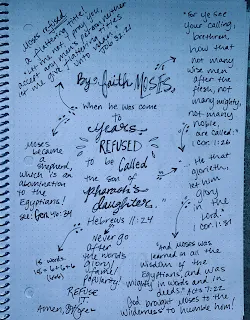 Moses refused
a flattering title!
"Let me not, I pray you,
accept any man's person, neither
let me give flattering titles
unto man."
Job 32:21
"For ye see
your calling,
brethren,
how that
not many
wise men
after the
flesh, not
many mighty,
not many
noble,
are called:"
1 Cor. 1:26
By faith MOSES,
when he was come
to
years,
REFUSED
to be called
the son of
pharaoh's
daughter."
Hebrews 11:24
Moses
became
a
shepherd,
which is an
abomination
to the
Egyptians!
see: Gen. 46:34
"He that
glorieth,
let him
Glory
in the
Lord."
1 Cor. 1:31
Never go
after
the world's
Glory!
fame!
popularity!
18 words
18 = 6+6+6
REFUSE
IT!
Amen,
"And Moses was
learned in all the
Wisdom of the
Egyptians, and was
mighty in words and in
deeds." Acts 7:22
God brought Moses to the
wilderness to humble him!